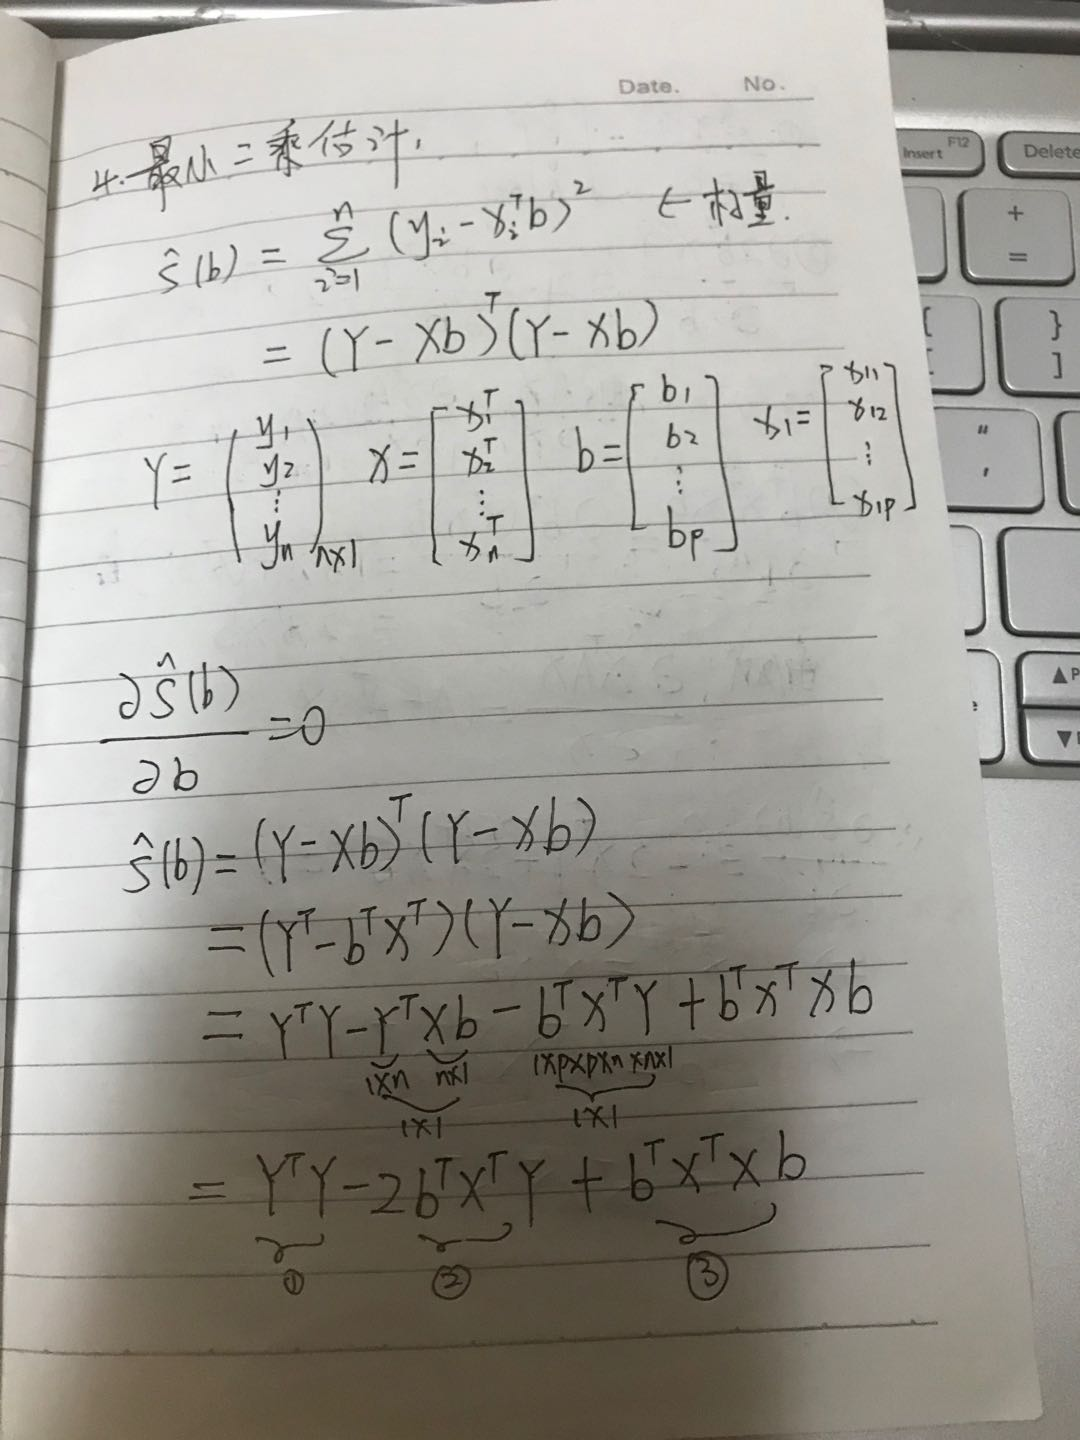 Date. No.
4. 最小二乘估计.
ŝ(b) = ∑ⁿᵢ₌₁ (yᵢ - xᵢᵀb)² ← 标量.
= (Y - Xb)ᵀ(Y - Xb)
Y = (y₁ y₂ ⋮ yₙ)n×1 X = [x₁ᵀ x₂ᵀ ⋮ xₙᵀ] b = [b₁ b₂ ⋮ bp] x₁ = [x₁₁ x₁₂ ⋮ x₁p]
∂ŝ(b)/∂b = 0
ŝ(b) = (Y - Xb)ᵀ(Y - Xb)
= (Yᵀ - bᵀXᵀ)(Y - Xb)
= YᵀY - YᵀXb - bᵀXᵀY + bᵀXᵀXb
1×n n×1 1×p×p×n×n×1
1×1 1×1
= YᵀY - 2bᵀXᵀY + bᵀXᵀXb
① ② ③
Insert F12 Delete
+ =
{ [ } ]
" '